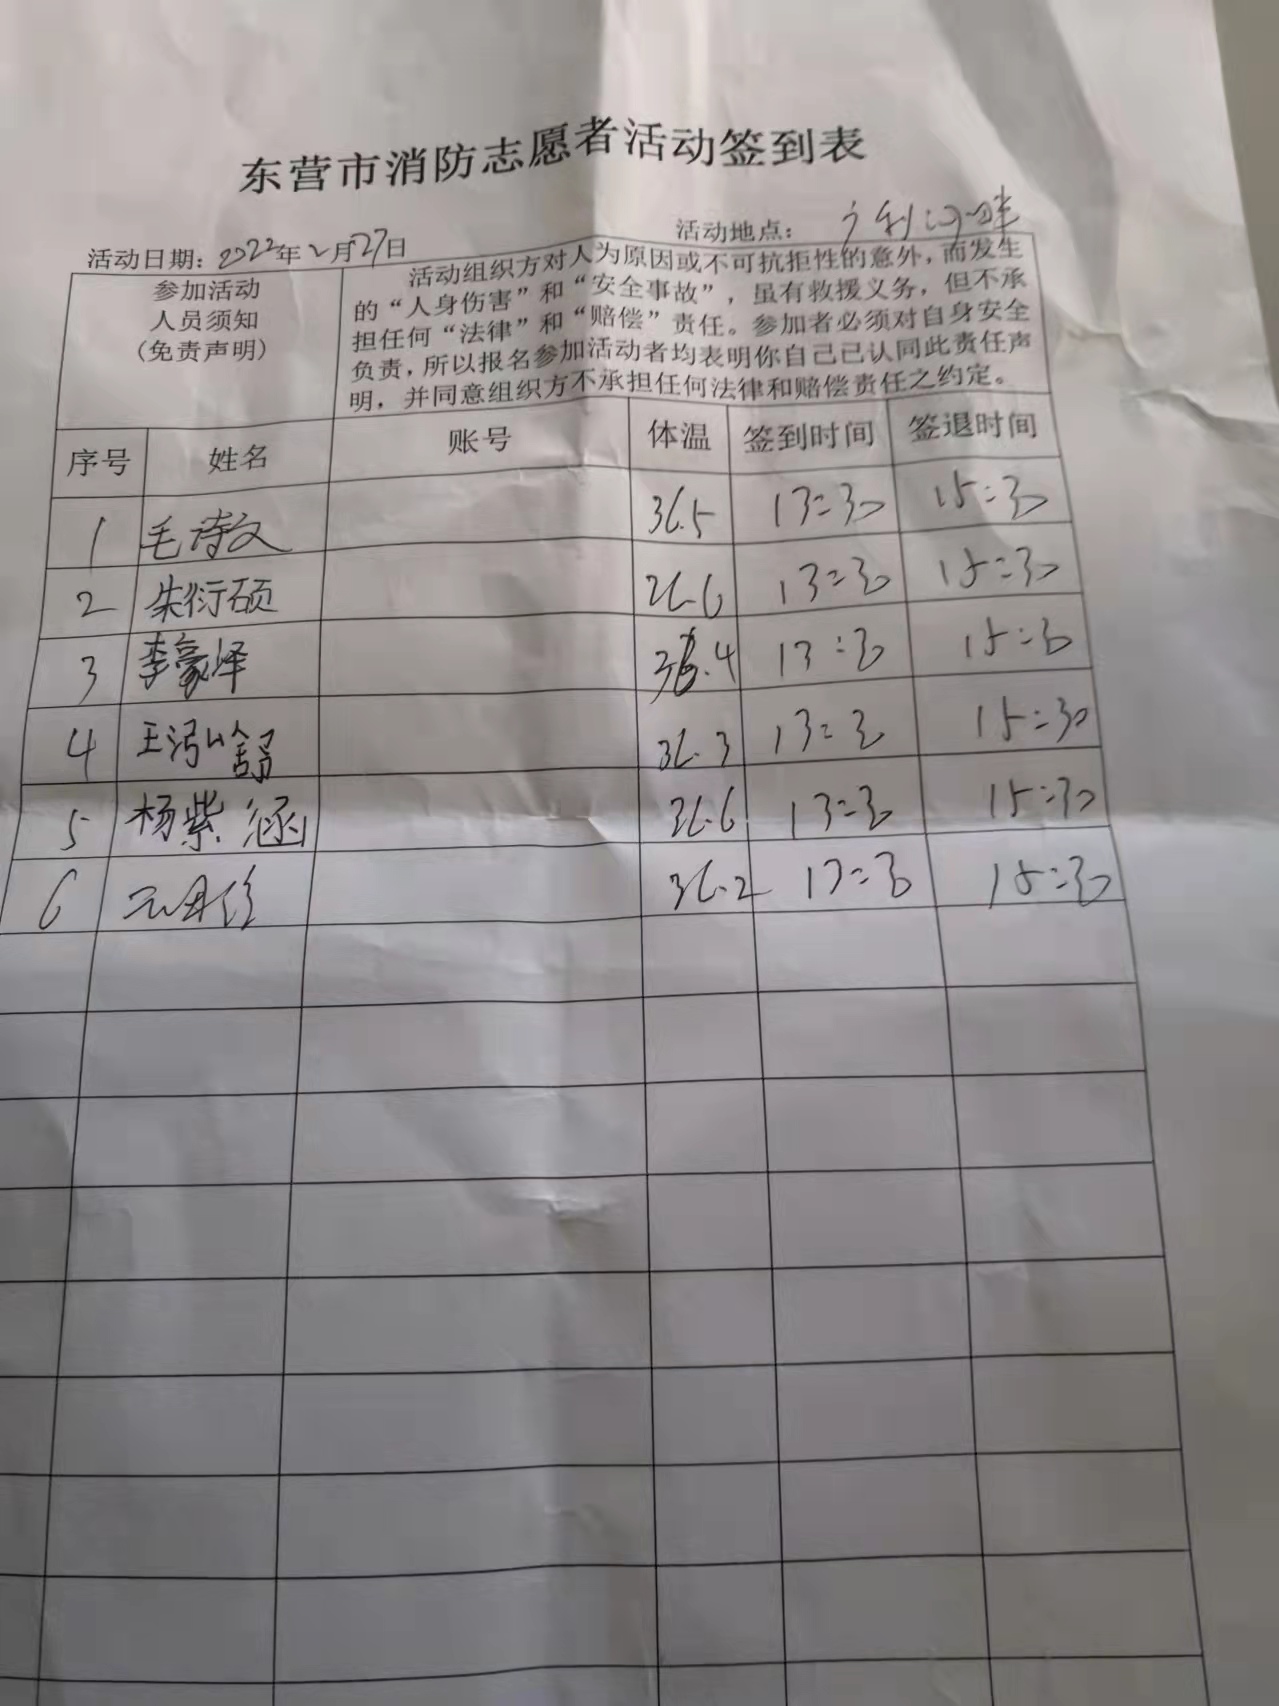 东营市消防志愿者活动签到表
活动日期：2022年2月27日 活动地点：广利河畔
参加活动
人员须知
（免责声明）
活动组织方对人为原因或不可抗拒性的意外，而发生
的“人身伤害”和“安全事故”，虽有救援义务，但不承
担任何“法律”和“赔偿”责任。参加者必须对自身安全
负责，所以报名参加活动者均表明你自己已认同此责任声
明，并同意组织方不承担任何法律和赔偿责任之约定。
序号 姓名 账号 体温 签到时间 签退时间
1 毛诗文 36.5 13:30 15:30
2 朱衍硕 36.6 13:30 15:30
3 李豪烨 36.4 13:30 15:30
4 王泓舒 36.3 13:30 15:30
5 杨紫涵 36.6 13:30 15:30
6 36.2 13:30 15:30